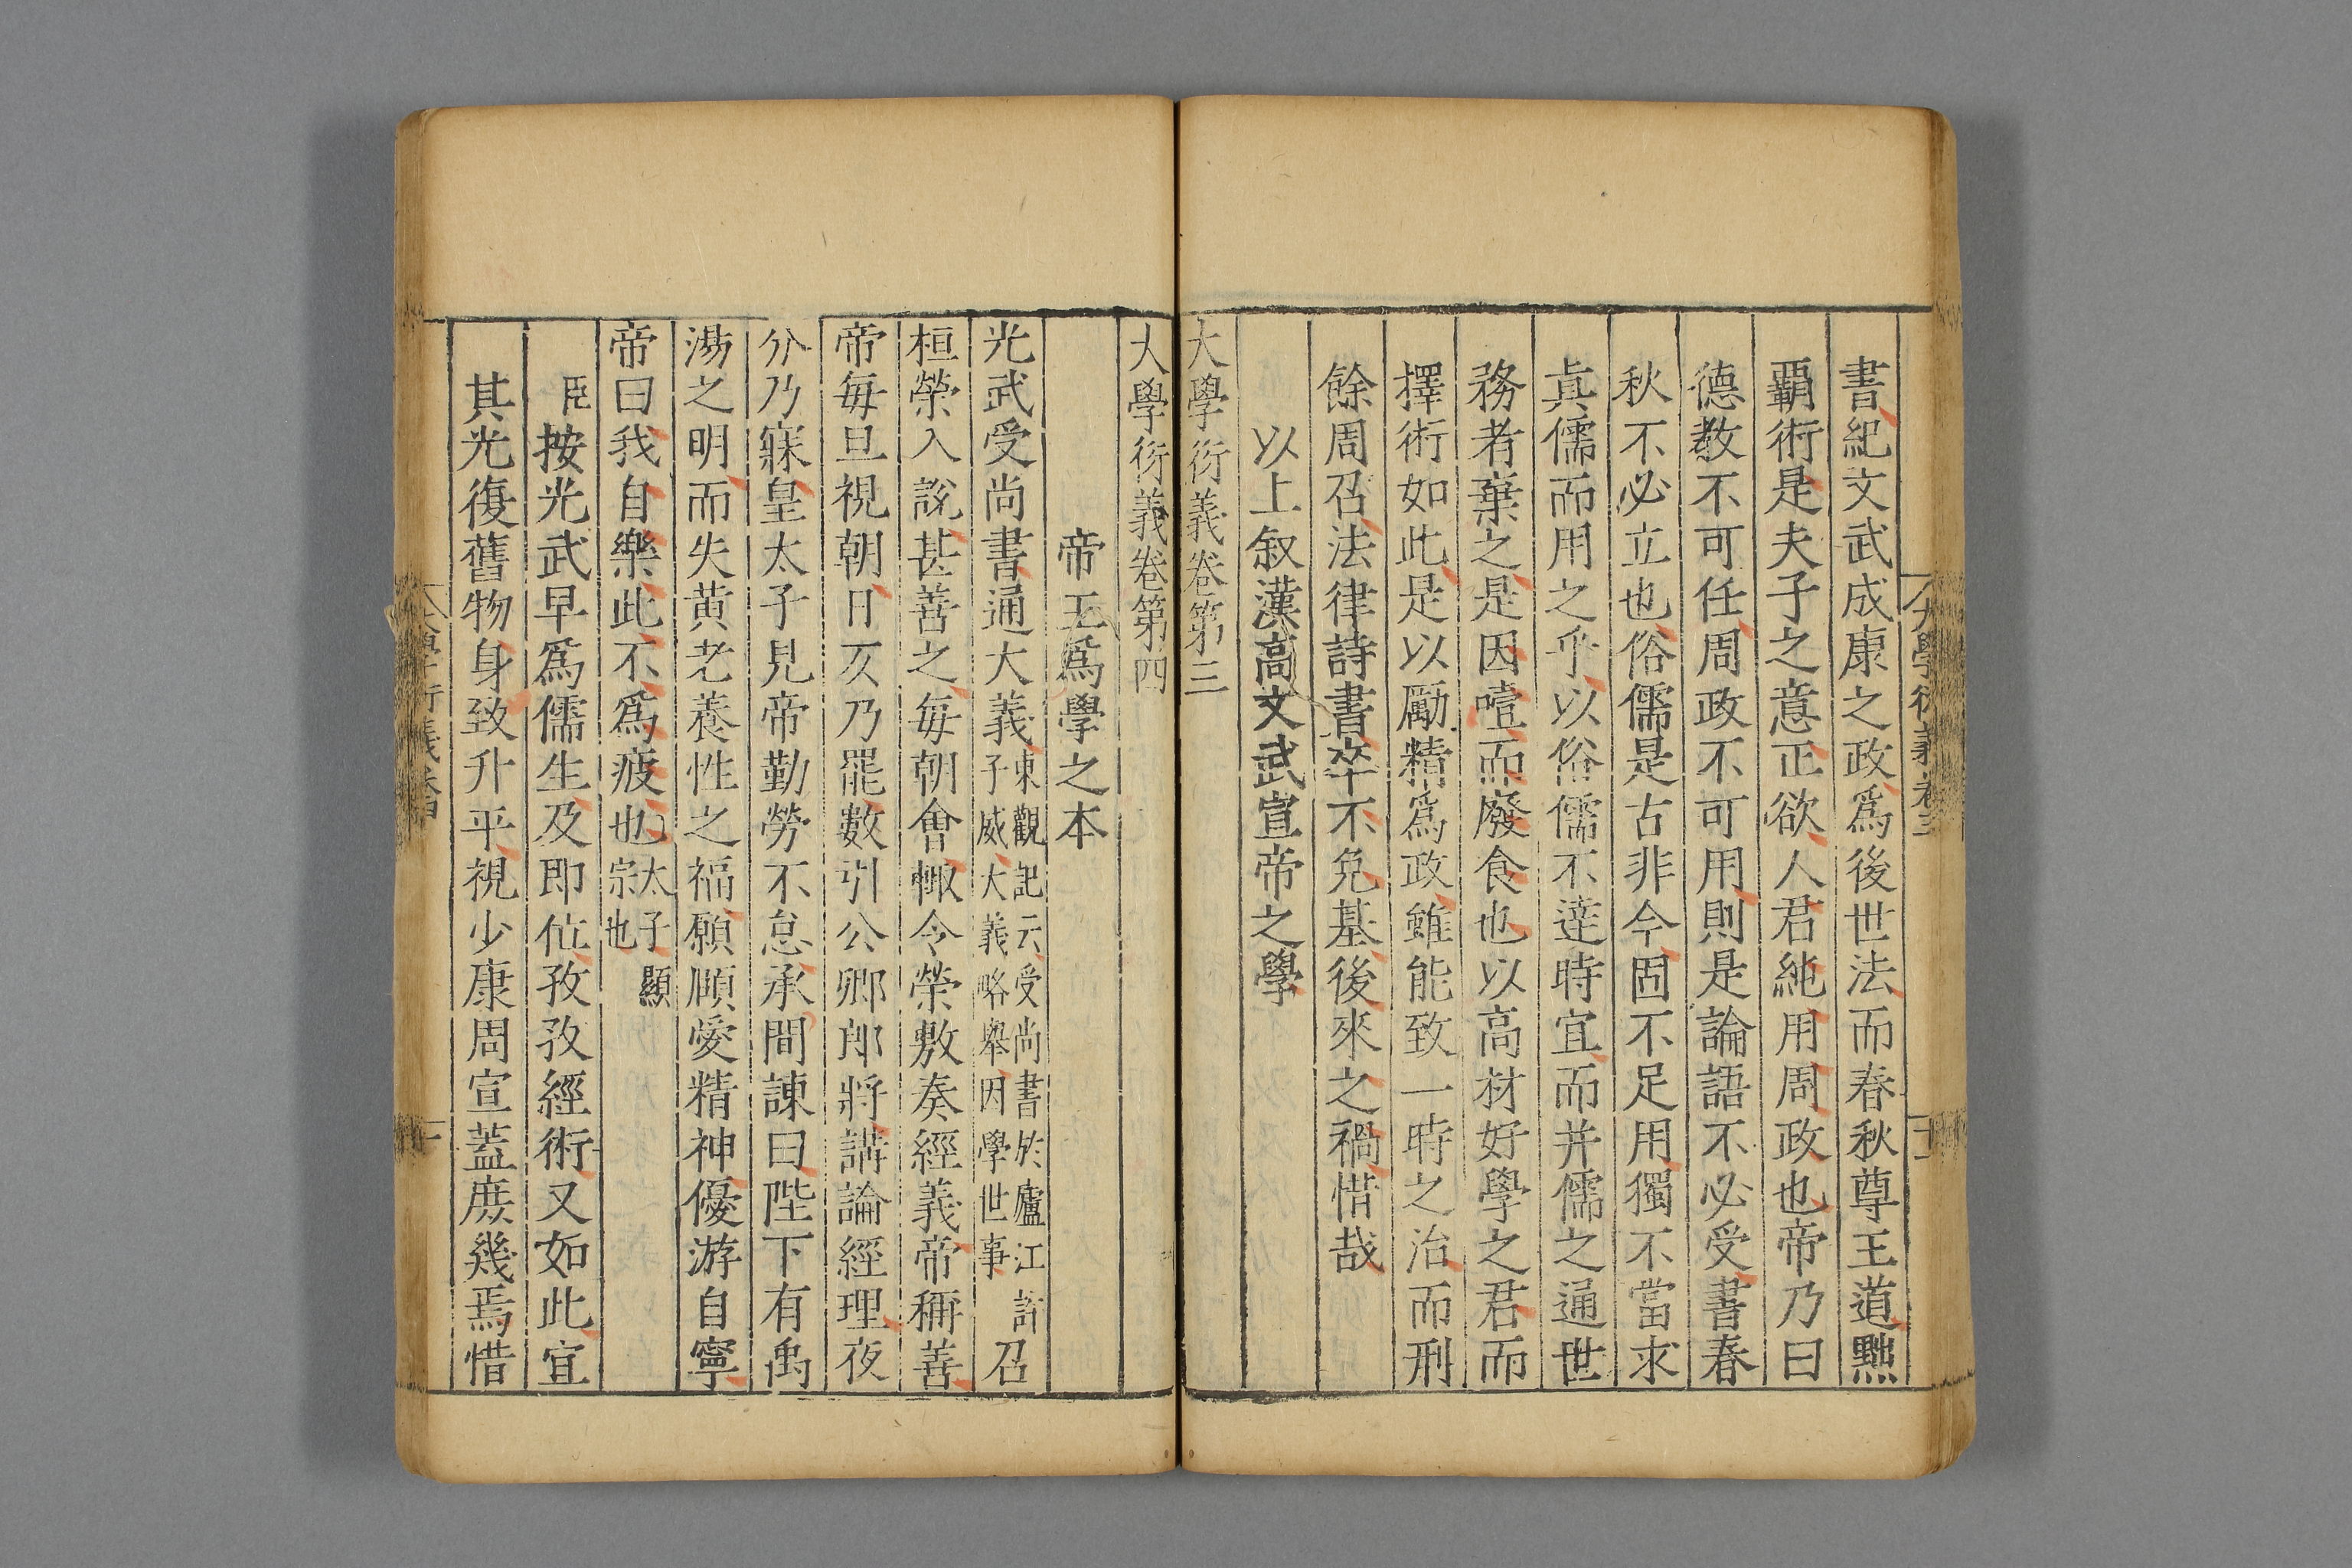 書紀文武成康之政爲後世法而春秋尊王道黜
覇術是夫子之意正欲人君純用周政也帝乃曰
德教不可任周政不可用則是論語不必受書春
秋不必立也俗儒是古非今固不足用獨不當求
眞儒而用之乎以俗儒不達時宜而并儒之通世
務者棄之是因噎而廢食也以高材好學之君而
擇術如此是以勵精爲政雖能致一時之治而刑
餘周召法律詩書卒不免基後來之禍惜哉
以上叙漢高文武宣帝之學
大學衍義卷第三
大學衍義卷第四
帝王爲學之本
光武受尚書通大義東觀記云受尚書於廬江許子威大義略舉因學世事召
桓榮入說甚善之每朝會輒令榮敷奏經義帝稱善
帝每旦視朝日仄乃罷數引公卿郎將講論經理夜
分乃寐皇太子見帝勤勞不怠承間諫曰陛下有禹
湯之明而失黃老養性之福願頤愛精神優游自寧
帝曰我自樂此不爲疲也太子顯宗也
臣按光武早爲儒生及即位孜孜經術又如此宜
其光復舊物身致升平視少康周宣蓋庶幾焉惜